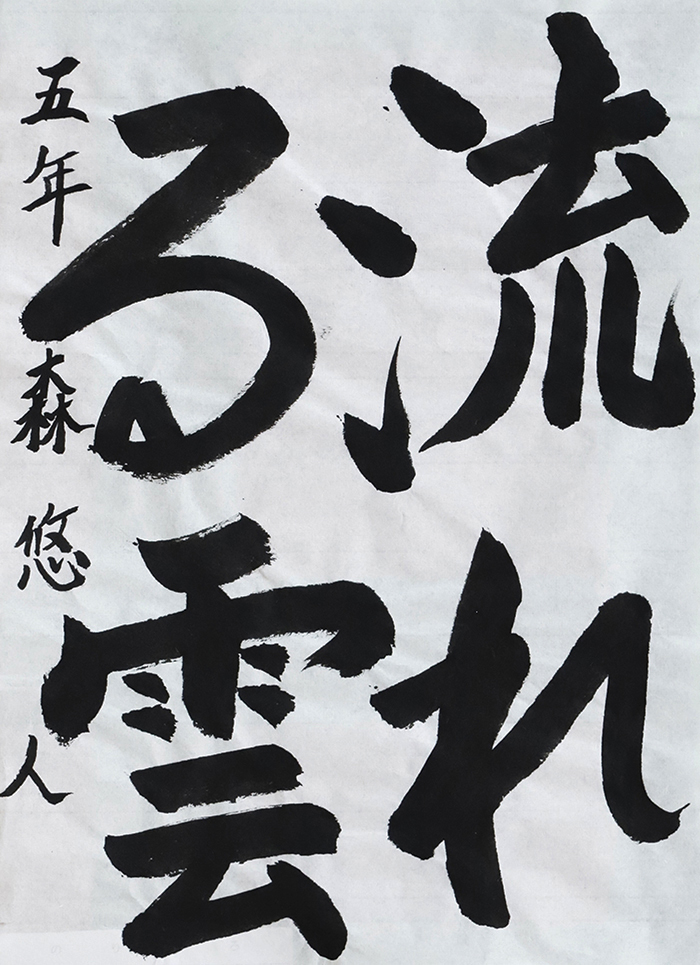 流れ
る雲
五年 森 悠人